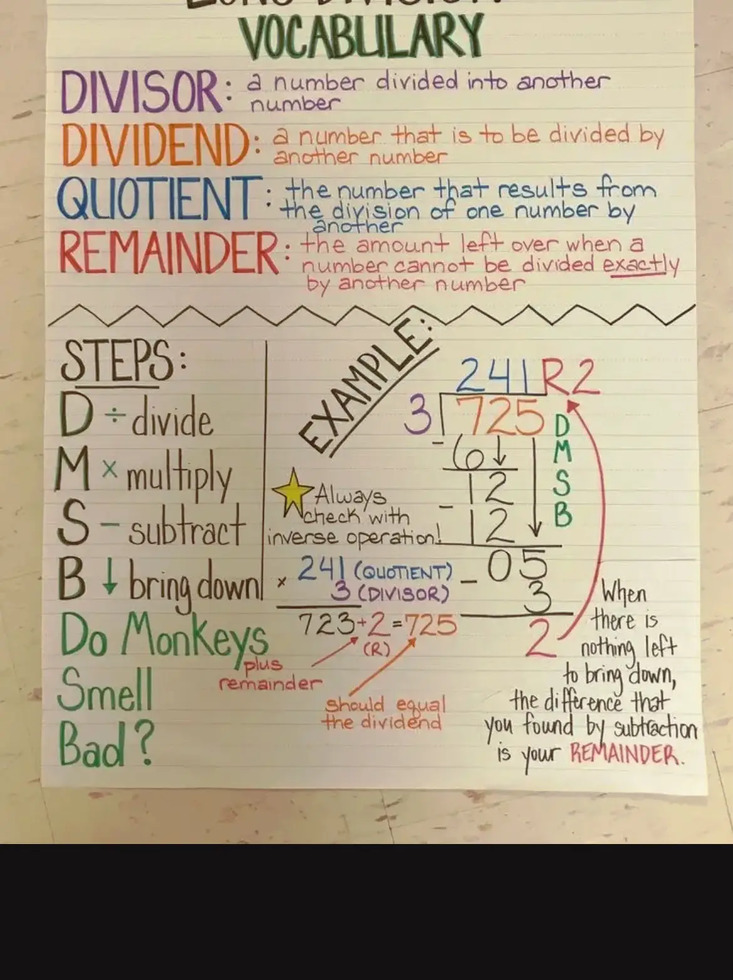 LONG DIVISION
VOCABULARY
DIVISOR: a number divided into another
number
DIVIDEND: a number that is to be divided by
another number
QUOTIENT: the number that results from
the division of one number by
another
REMAINDER: the amount left over when a
number cannot be divided exactly
by another number
STEPS:
D ÷ divide
M × multiply
S - subtract
B ↓ bring down
Do Monkeys
Smell
Bad?
EXAMPLE:
241R2
3 725
- 6 ↓
12
- 12
05
- 3
2
D
M
S
B
Always
check with
inverse operation!
241 (QUOTIENT)
× 3 (DIVISOR)
723+2=725
(R)
plus
remainder
should equal
the dividend
When
there is
nothing left
to bring down,
the difference that
you found by subtraction
is your REMAINDER.